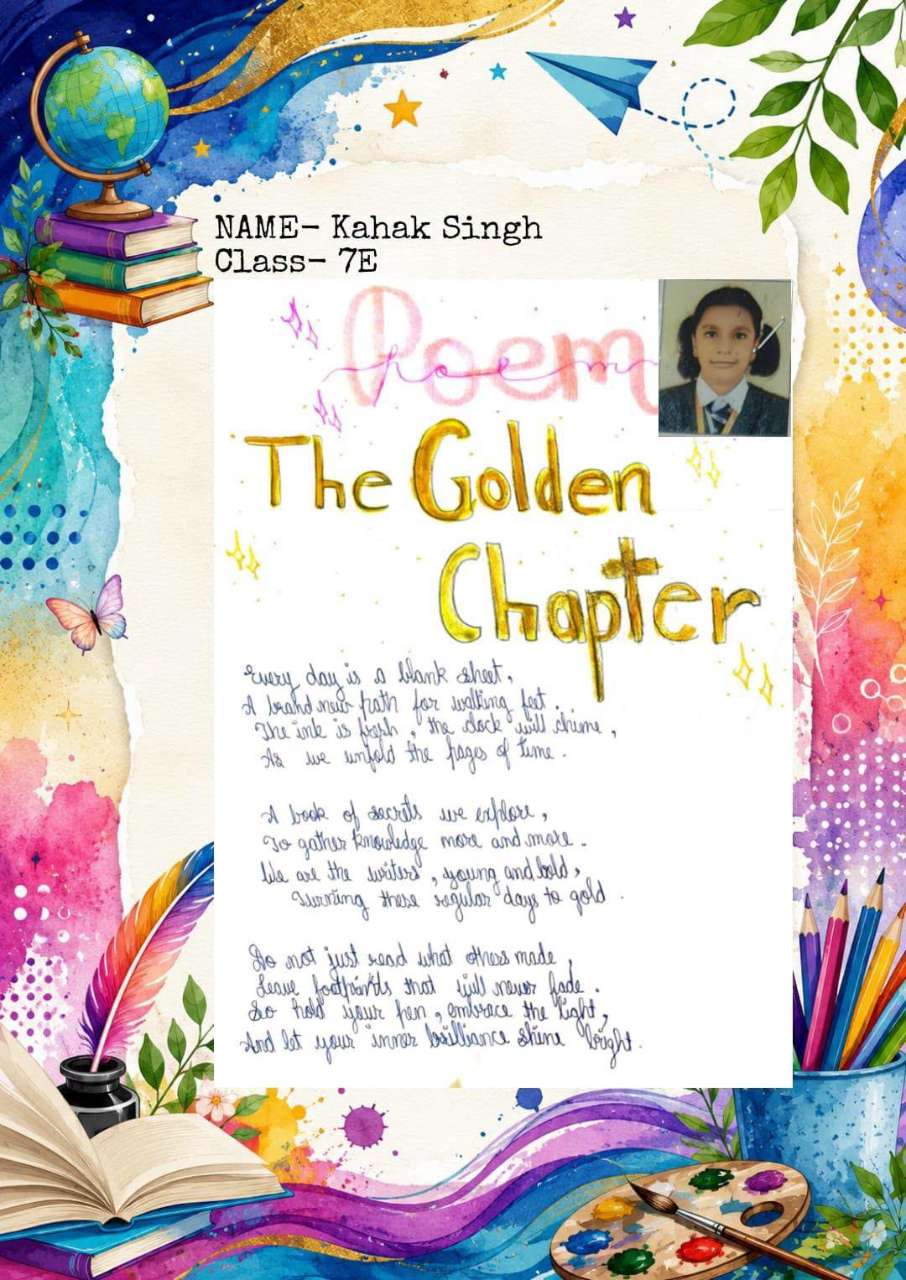 NAME- Kahak Singh
Class- 7E
Poem
poem
The Golden
Chapter
Every day is a blank sheet,
A brand new path for walking feet.
The ink is fresh, the clock will chime,
As we unfold the pages of time.
A book of secrets we explore,
To gather knowledge more and more.
We are the writers, young and bold,
Turning these regular days to gold.
Do not just read what others made,
Leave footprints that will never fade.
So hold your pen, embrace the light,
And let your inner brilliance shine bright.